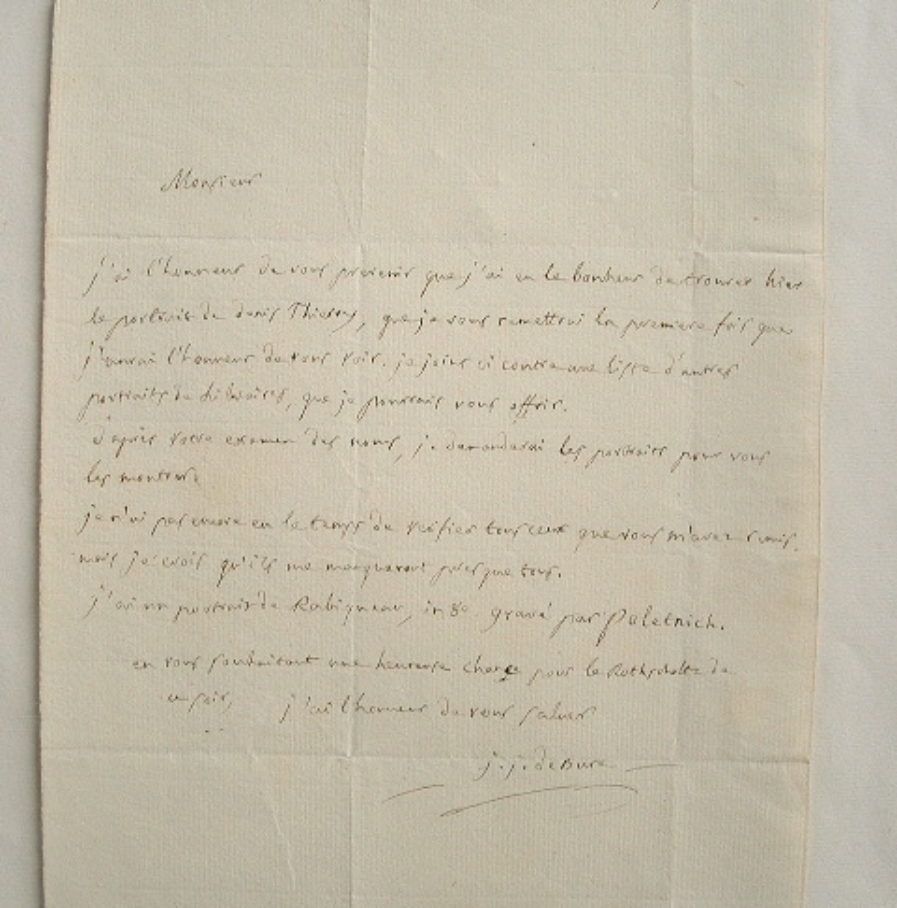 Monsieur
j'ai l'honneur de vous prevenir que j'ai eu le bonheur de trouver hier
le portrait de denis Thierry, que je vous remettrai la premiere fois que
j'aurai l'honneur de vous voir. je joins ci contre une liste d'autres
portraits de libraires, que je pourrais vous offrir.
d'après votre examen des noms, je demanderai les portraits pour vous
les montrer.
je n'ai pas encore eu le temps de verifier tous ceux que vous m'avez remis,
mais je crois qu'ils me manquent presque tous.
j'ai un portrait de Rabiqueau, in 8º. gravé par Poletnich.
en vous souhaitant une heureuse chance pour le de
ce soir, j'ai l'honneur de vous saluer
j. j. de Bure